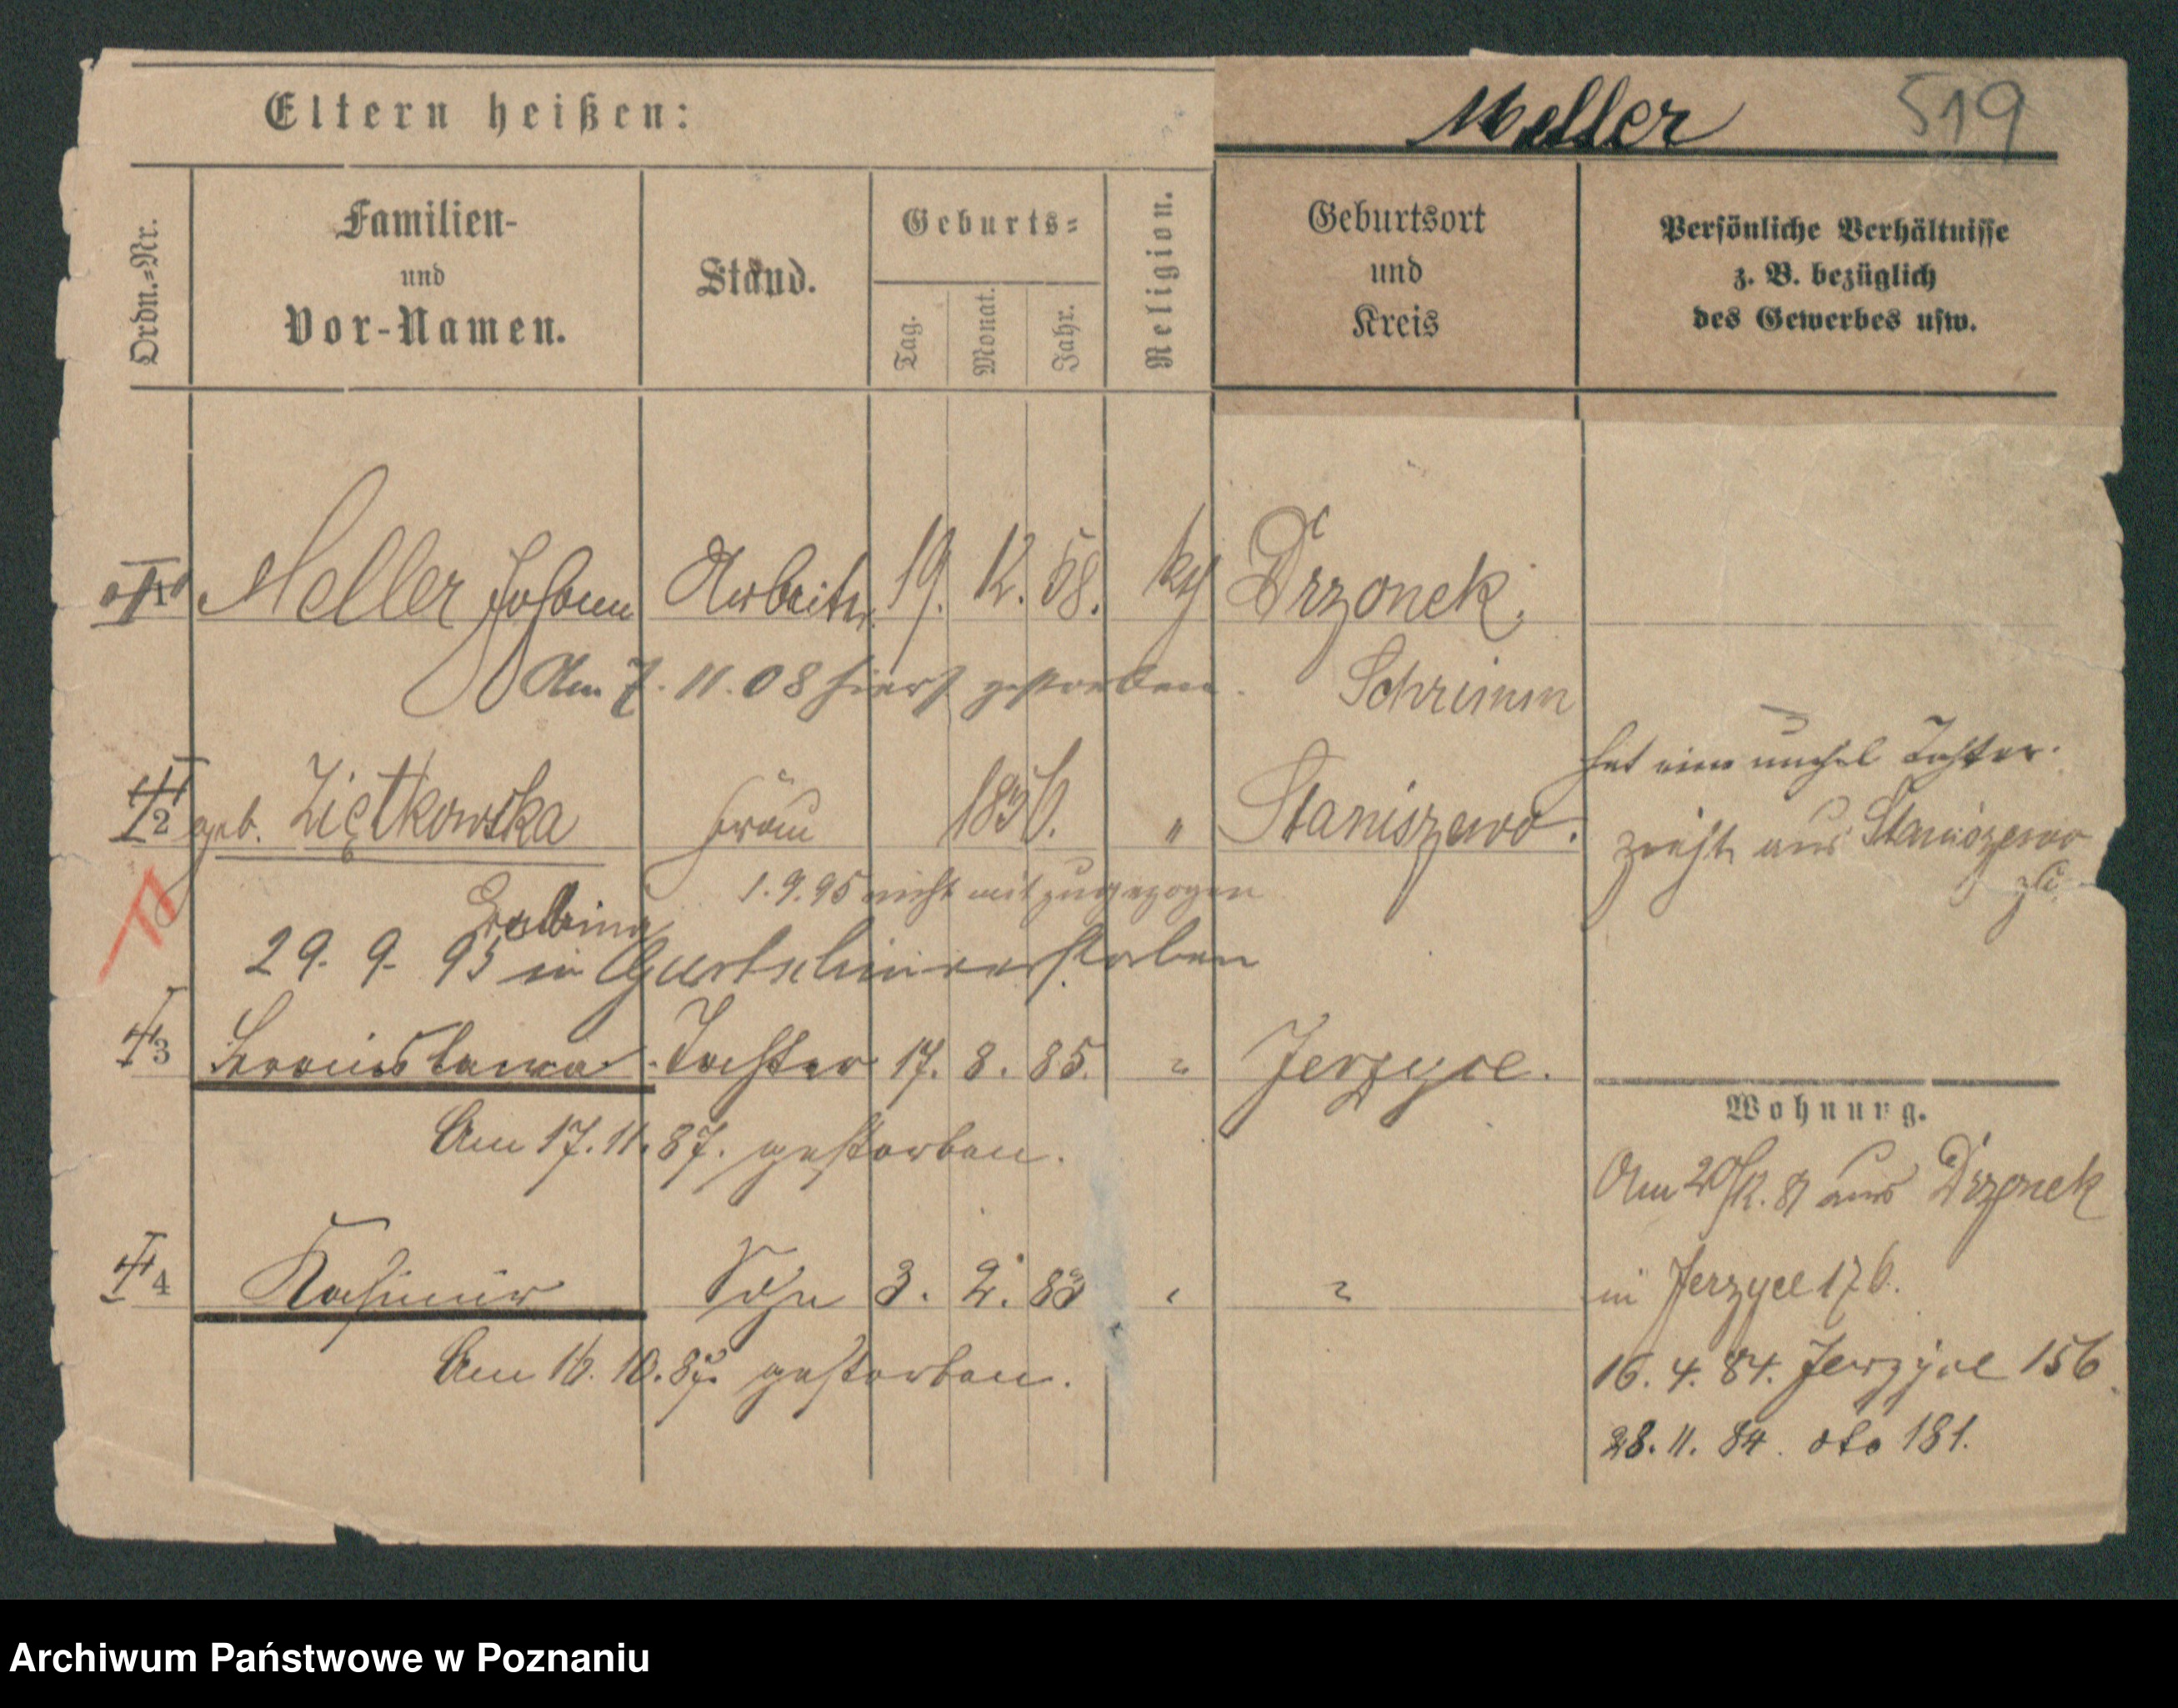 Eltern heißen:
Meller 519
Ordn.=Nr.
Familien-
und
Vor-Namen.
Stand.
Geburts=
Tag.
Monat.
Jahr.
Religion.
Geburtsort
und
Kreis
Persönliche Verhältnisse
z. B. bezüglich
des Gewerbes usw.
1 Meller Johann Arbeiter 19. 12. 58. kth Drzonek.
Am 7. 11. 08 hierf gestorben. Schrimm
2 geb. Ziętkowska Frau 1856. " Staniszewo.
hat eine unehel Tochter.
zieht aus Staniszewo
1. 9. 95 nicht mit zugezogen
29. 9. 95 in Gurtschin verstorben
3 Bronislawa Tochter 17. 8. 85. " Jerzyce.
Am 17. 11. 87. gestorben.
Wohnung.
Am 20/12. 81 aus Drzonek
in Jerzyce 176.
4 Kasimir Sohn 3. 2. 83 " "
Am 16. 10. 87. gestorben.
16. 4. 84. Jerzyce 156
28. 11. 84. dto 181.
Archiwum Państwowe w Poznaniu